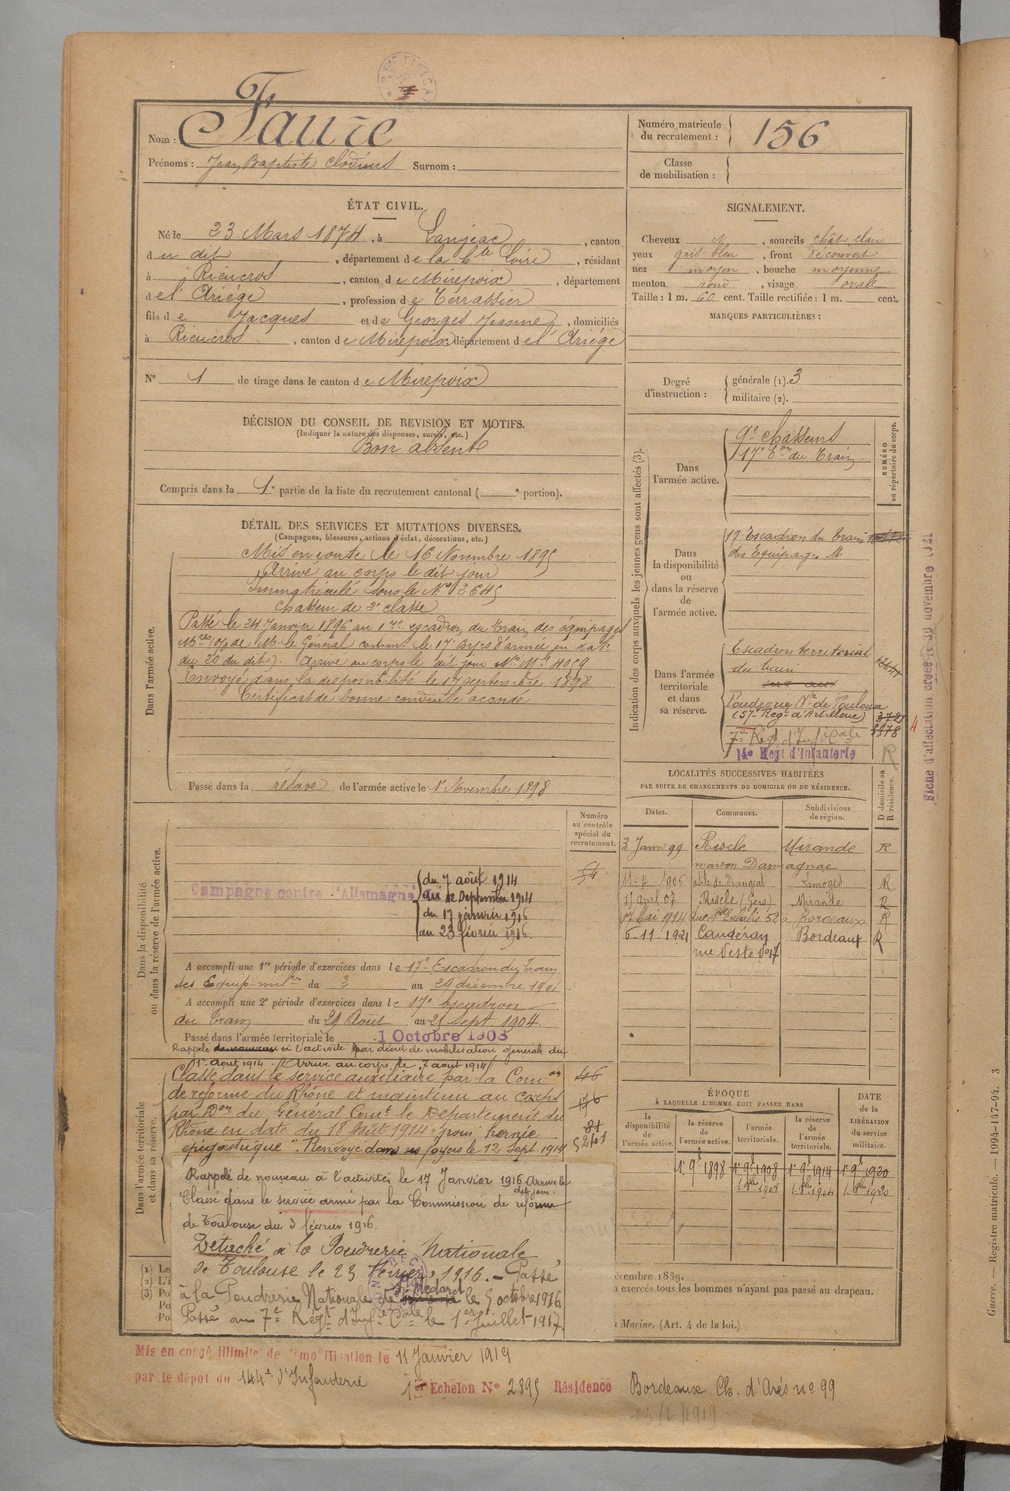 Nom : Faure
Prénoms : Jean Baptiste Clodius Surnom :
Numéro matricule
du recrutement : 156
Classe
de mobilisation :
ÉTAT CIVIL.
Né le 23 Mars 1874, à Langeac, canton
du dit, département de la Hte Loire, résidant
à Rieucros, canton de Mirepoix, département
de l'Ariège, profession de Terrassier
fils de Jacques et de Georges Jeanne, domiciliés
à Rieucros, canton de Mirepoix, département de l'Ariège
N° 1 de tirage dans le canton de Mirepoix
SIGNALEMENT.
Cheveux , sourcils chât. clair
yeux gris-bleu, front découvert
nez moyen, bouche moyenne
menton rond, visage ovale
Taille : 1 m. 60 cent. Taille rectifiée : 1 m. cent.
MARQUES PARTICULIÈRES :
Degré
d'instruction :
générale (1). 3
militaire (2).
DÉCISION DU CONSEIL DE REVISION ET MOTIFS.
(Indiquer la nature des dispenses, sursis, etc.)
Bon absent
Compris dans la 1e partie de la liste du recrutement cantonal ( e portion).
DÉTAIL DES SERVICES ET MUTATIONS DIVERSES.
(Campagnes, blessures, actions d'éclat, décorations, etc.)
Dans l'armée active.
Mis en route le 16 Novembre 1895
Arrivé au corps le dit jour
Immatriculé sous le N° 3645
Chasseur de 2e classe
Passé le 24 Janvier 1896 au 17e escadron du Train des équipages
Mres (O/ de Mr le Général comm. le 17 corps d'armée en date
du 20 du dit). Arrivé au corps le dit jour N° Mle 4059
Envoyé dans la disponibilité le 17 septembre 1898
Certificat de bonne conduite accordé
Passé dans la réserve de l'armée active le 1r Novembre 1898
Indication des corps auxquels les jeunes gens sont affectés (3).
NUMÉRO
au répertoire du corps.
Dans
l'armée active.
9e Chasseurs
17e Eon du Train
Dans
la disponibilité
ou
dans la réserve
de
l'armée active.
17 Escadron du Train
des Equipages M.
Dans l'armée
territoriale
et dans
sa réserve.
Escadron territorial
du train
Poudrerie Nle de Toulouse
(57e Régt d'Artillerie)
7e Régt d'Infie Cale
14e Régt d'Infanterie
Fiche d'affectation créée le 30 novembre 1921
LOCALITÉS SUCCESSIVES HABITÉES
PAR SUITE DE CHANGEMENTS DE DOMICILE OU DE RÉSIDENCE.
Dates. Communes. Subdivisions
de région. D domicile ou
R résidence.
3 Janv 99 Riscle Mirande R
maison Damagnac
11-7-1906 Limoges R
15 avril 07 Riscle (Gers) Mirande R
07 Mai 1914 Rue Ste Eulalie 52 à Bordeaux R
6-11-1921 Caudéran Bordeaux R
Numéro
au contrôle
spécial du
recrutement.
Dans la disponibilité
ou dans la réserve de l'armée active.
Campagne contre l'Allemagne
du 7 août 1914
au 12 Septembre 1914
du 17 janvier 1916
au 23 février 1916
A accompli une 1re période d'exercices dans le 17e Escadron du Train
des Equip. mres du 2 au 29 décembre 1901
A accompli une 2e période d'exercices dans le 17e escadron
du Train du 29 Août au 25 Sept 1904
Passé dans l'armée territoriale le 1 Octobre 1908
Rappelé à l'activité par décret de mobilisation générale du
1er août 1914. Arrivé au corps le 7 août 1914
Dans l'armée territoriale
et dans sa réserve.
Classé dans le service auxiliaire par la Comon
de réforme du Rhône et maintenu au corps
par Don du Général Comt le Département du
Rhône en date du 18 Août 1914 pour hernie
épigastrique". Renvoyé dans ses foyers le 12 Sept 1914
Rappelé de nouveau à l'activité le 17 Janvier 1916 Arrivé le
dit jour.
Classé dans le service armé par la Commission de réforme
de Toulouse du 3 février 1916.
Détaché à la Poudrerie Nationale
de Toulouse le 23 février 1916. – Passé
à la Poudrerie Nationale de St Médard le 5 octobre 1916
Passé au 7e Régt d'Infie Cale le 1er juillet 1917
ÉPOQUE
À LAQUELLE L'HOMME DOIT PASSER DANS
la
disponibilité
de
l'armée active.
la réserve
de
l'armée active.
l'armée
territoriale.
la réserve
de
l'armée
territoriale.
DATE
de la
LIBÉRATION
du service
militaire.
1r 9e 1898 1r 9e 1908 1r 9e 1914 1r 9e 1920
écembre 1889.
a exercés tous les hommes n'ayant pas passé au drapeau.
Marine. (Art. 4 de la loi.)
Mis en congé illimité de démobilisation le 11 Janvier 1919
par le dépôt du 144e d'Infanterie 1er Echelon N° 2895 Résidence Bordeaux Ch. d'Arès n° 99
Guerre. — Registre matricule. — 1994-147-94. 3